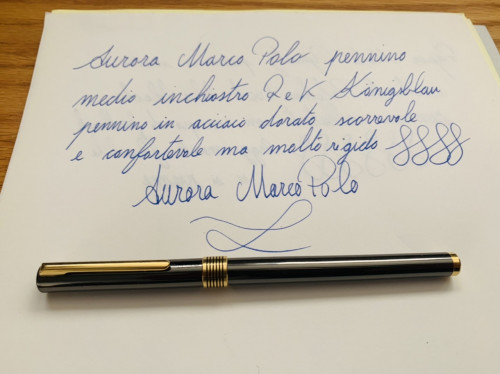 Aurora Marco Polo pennino
medio inchiostro R e K Königsblau
pennino in acciaio dorato scorrevole
e confortevole ma molto rigido
Aurora Marco Polo